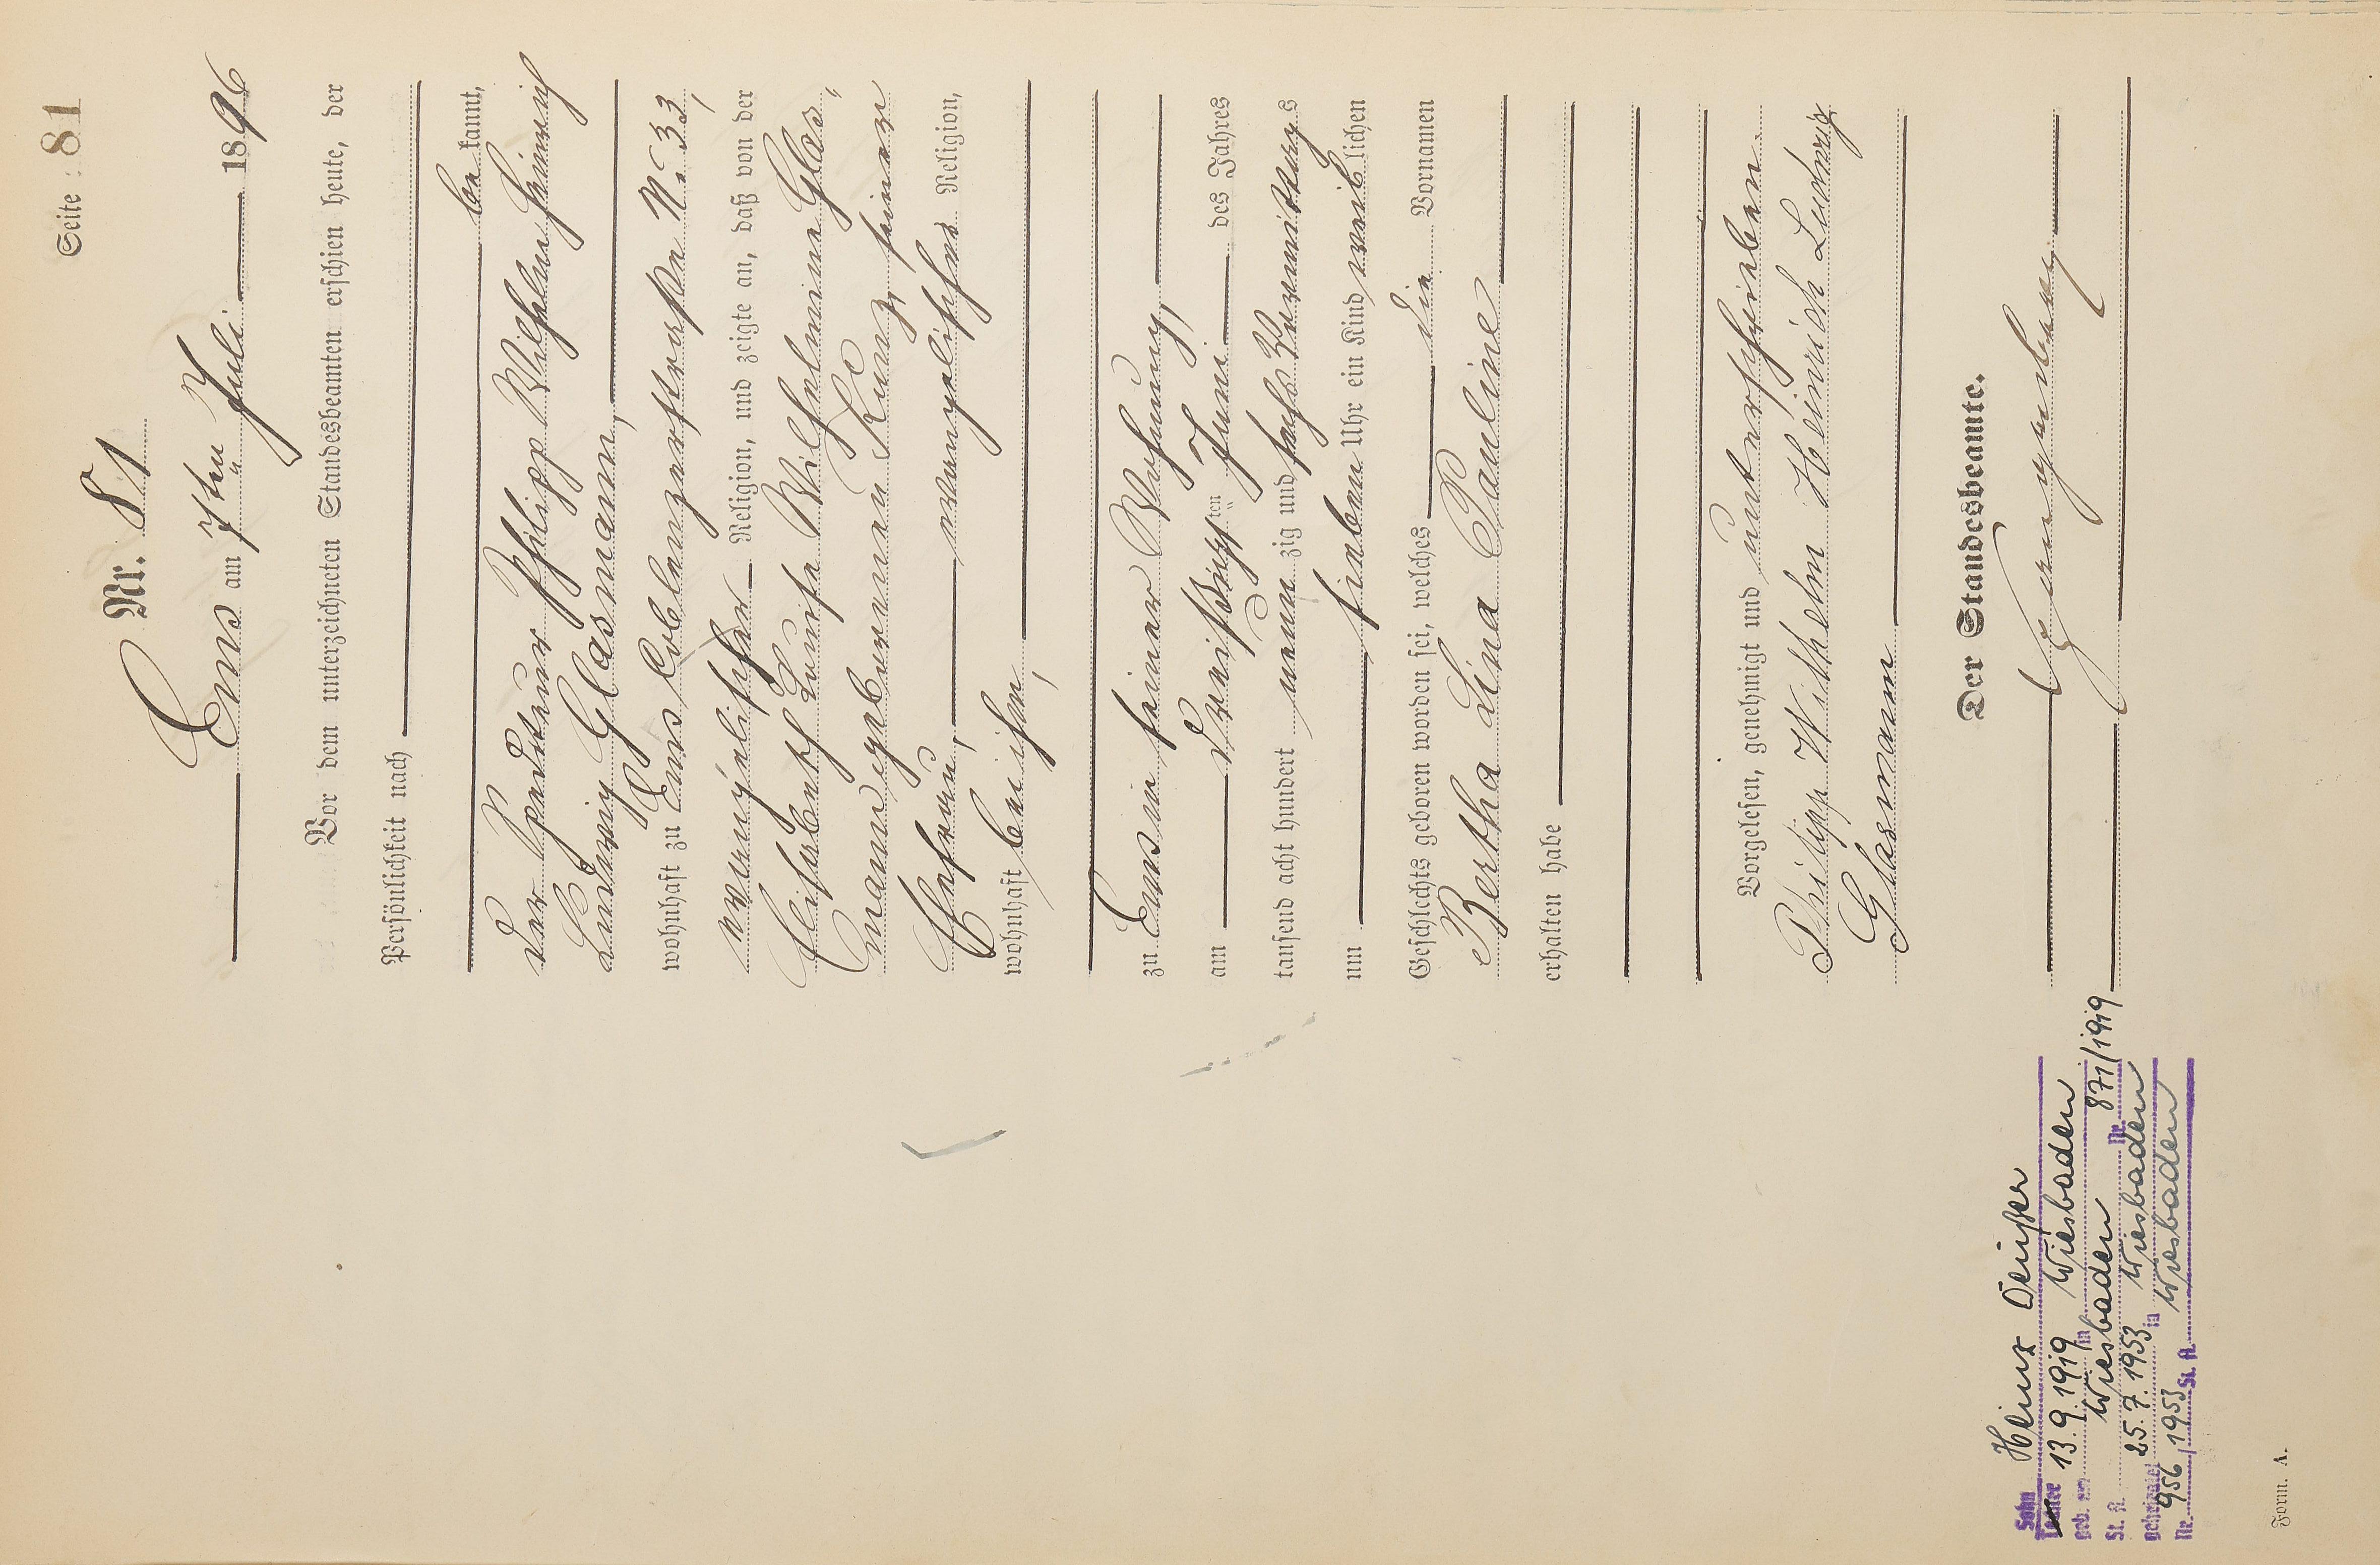 Seite 81
Nr. 81
Ems am 7ten Juli 1896
Vor dem unterzeichneten Standesbeamten erschien heute, der
Persönlichkeit nach
be kannt,
der Spediteur Philipp Wilhelm Heinrich
Ludwig Glasmann,
wohnhaft zu Ems, Coblenzerstraße No 33,
evangelischer Religion, und zeigte an, daß von der
Elisabeth Luise Wilhelmine Glas,
mann, geborenen Kunz, seiner
Ehefrau, evangelischer Religion,
wohnhaft bei ihm,
zu Ems in seiner Wohnung,
am dreißigsten Juni des Jahres
tausend acht hundert neun zig und sechs Vormittags
um sieben Uhr ein Kind weiblichen
Geschlechts geboren worden sei, welches die Vornamen
Bertha Lina Pauline
erhalten habe
Vorgelesen, genehmigt und unterschrieben.
Philipp Wilhelm Heinrich Ludwig
Glasmann
Der Standesbeamte.
Sohn Heinz
Tochter
geb. am 13.9.1919 in Wiesbaden
St. A. Wiesbaden Nr. 871/1919
geheiratet 25.7.1953 in Wiesbaden
Nr. 956/1953 St. A. Wiesbaden
Form. A.